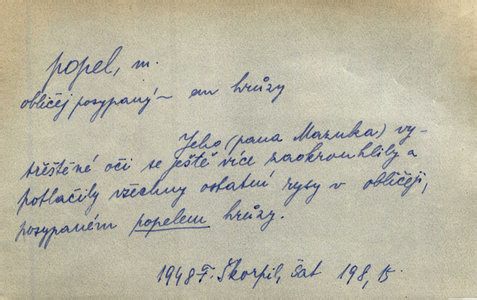 popel, m.
obličej posypaný ~ em hrůzy
Jeho (pana Mazuka) vy-
třeštěné oči se ještě více zaokrouhlily a
potlačily všechny ostatní rysy v obličeji,
posypaném popelem hrůzy.
1948 F. Škorpil, Šat 198, 15.